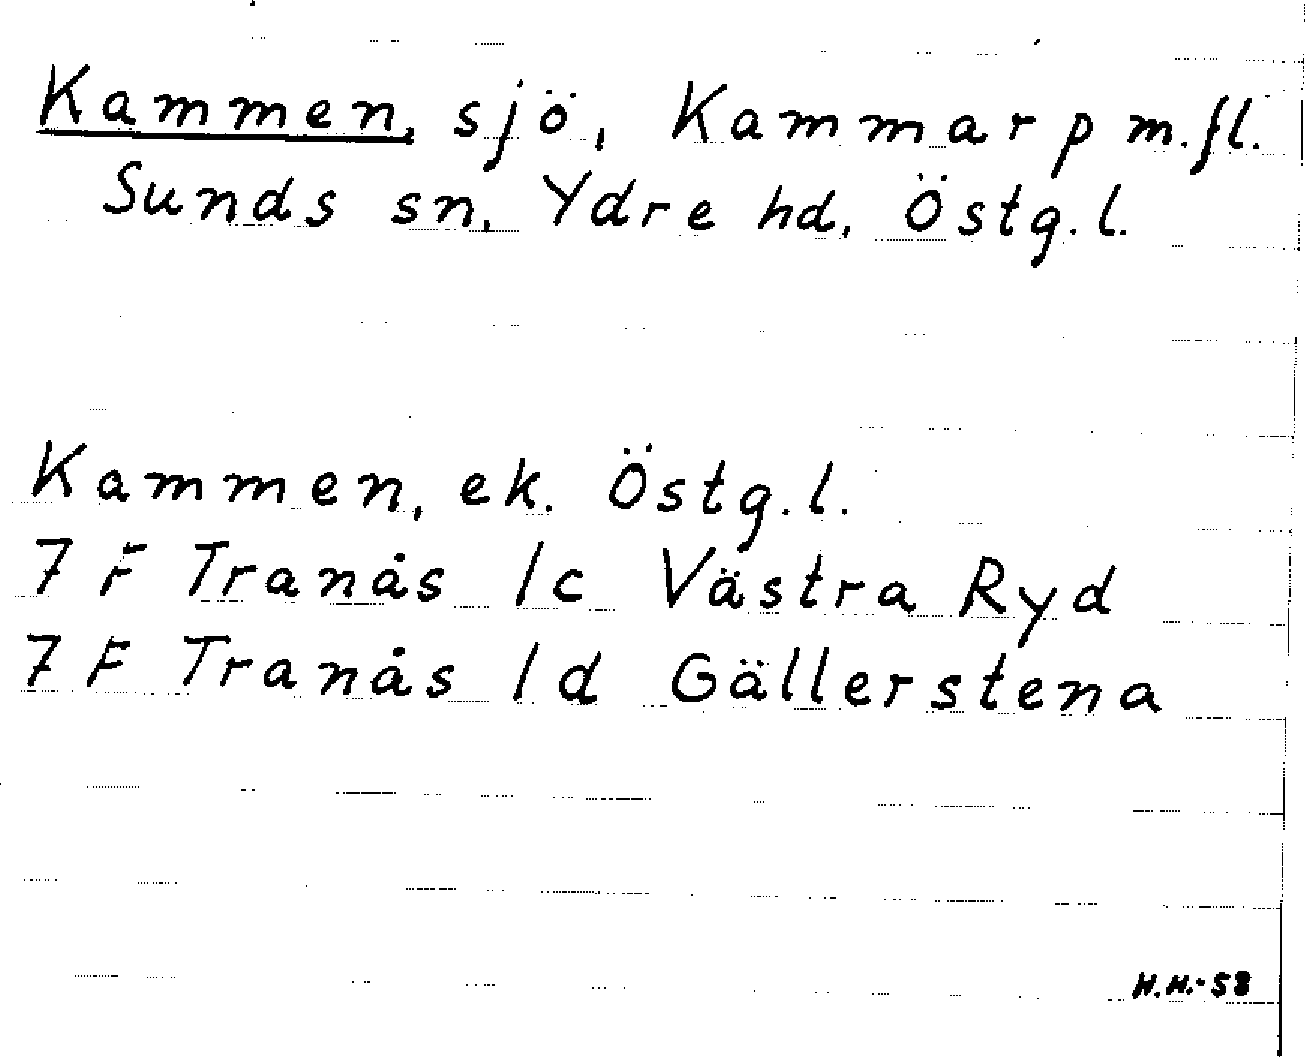 Kammen, sjö, Kammarp m.fl.
Sunds sn, Ydre hd, Östg.l.
Kammen, ek. Östg.l.
7 F Tranås 1c Västra Ryd
7 F Tranås 1d Gällerstena
H.H.-58